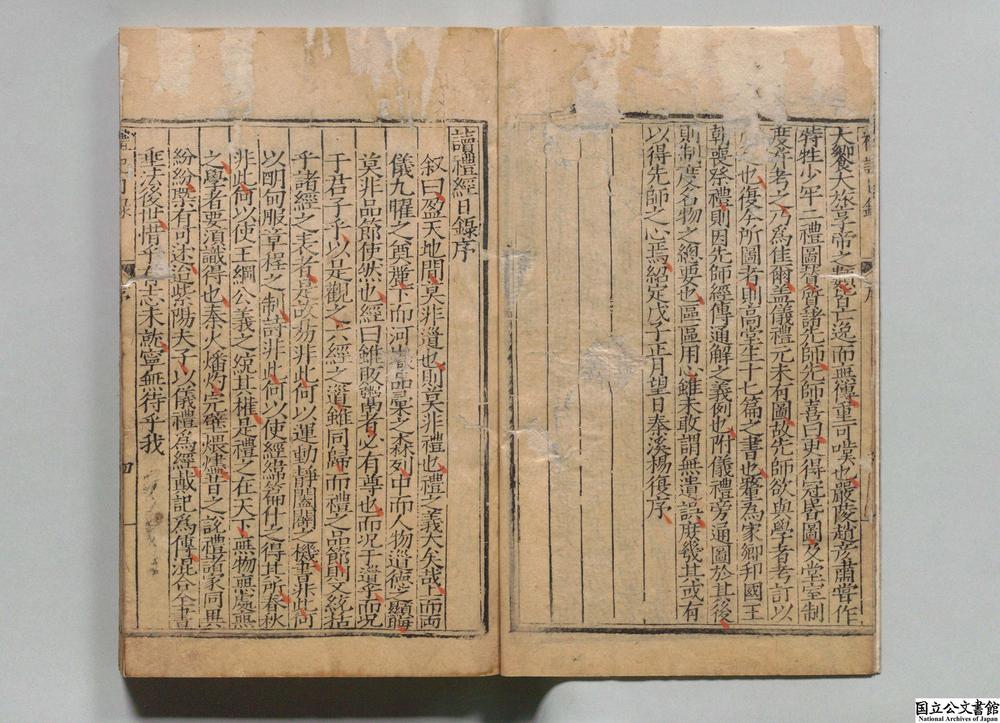 大饗大旅享帝之類皆亡逸而無傳重可嘆也嚴陵趙彥肅嘗作
特牲少牢二禮圖質諸先師先師喜曰更得冠昏圖及堂室制
度并考之乃為佳爾蓋儀禮元未有圖故先師欲與學者考訂以
也復今所圖者則高堂生十七篇之書也釐為家鄉邦國王
朝喪祭禮則因先師經傳通解之義例也附儀禮旁通圖於其後
則制度名物之總要也區區用心雖未敢謂無遺誤庶幾其或有
以得先師之心焉紹定戊子正月望日秦溪楊復序
讀禮經目錄序
叙曰盈天地間莫非道也則莫非禮也禮之義大矣哉上而兩
儀九曜之奠麗下而河嶽品彙之森列中而人物道德之顯晦
莫非品節使然也經曰雖販者必有尊也而況于道乎而況
于君子乎以是觀之六經之道雖同歸而禮之品節則又統括
乎諸經之表者是故易非此何以運動靜闔闢之機書非此何
以明甸服章程之制詩非此何以使經緯篇什之得其所春秋
非此何以使王綱公義之統其權是禮之在天下無物無處無
之學者要須識得也秦火燔灼完壁煨燼昔之說禮者家同異
紛紛罕有可述迨紫陽夫子以儀禮為經戴記為傳混合全書
垂示後世惜乎志未就寧無待乎我
国立公文書館
National Archives of Japan